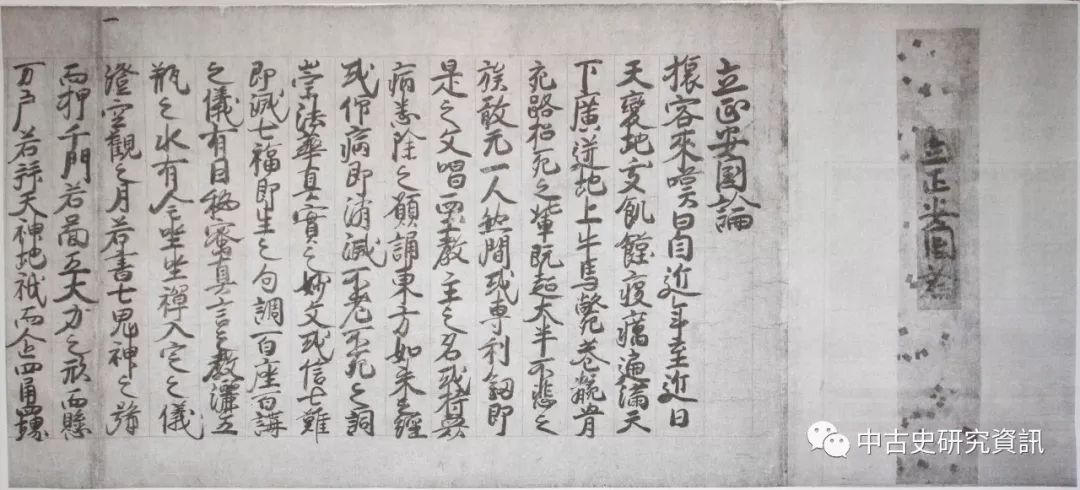 立正安国論
立正安国論
旅客來嘆曰自近年至近日
天變地夭飢饉疫癘遍滿天
下廣迸地上牛馬斃巷骸骨
充路招死之輩既超大半不悲之
族敢无一人然間或專利釼即
是之文唱西土教主之名或恃衆
病悉除之願誦東方如来之經
或仰病即消滅不老不死之詞
崇法華真實之妙文或信七難
即滅七福即生之句調百座百講
之儀有因秘蜜真言之教灑五
瓶之水有全坐禪入定之儀
澄空觀之月若書七鬼神之号
而押千門若圖五大力之形而懸
万戸若拜天神地祇而企四角四堺
一
中古史研究資訊